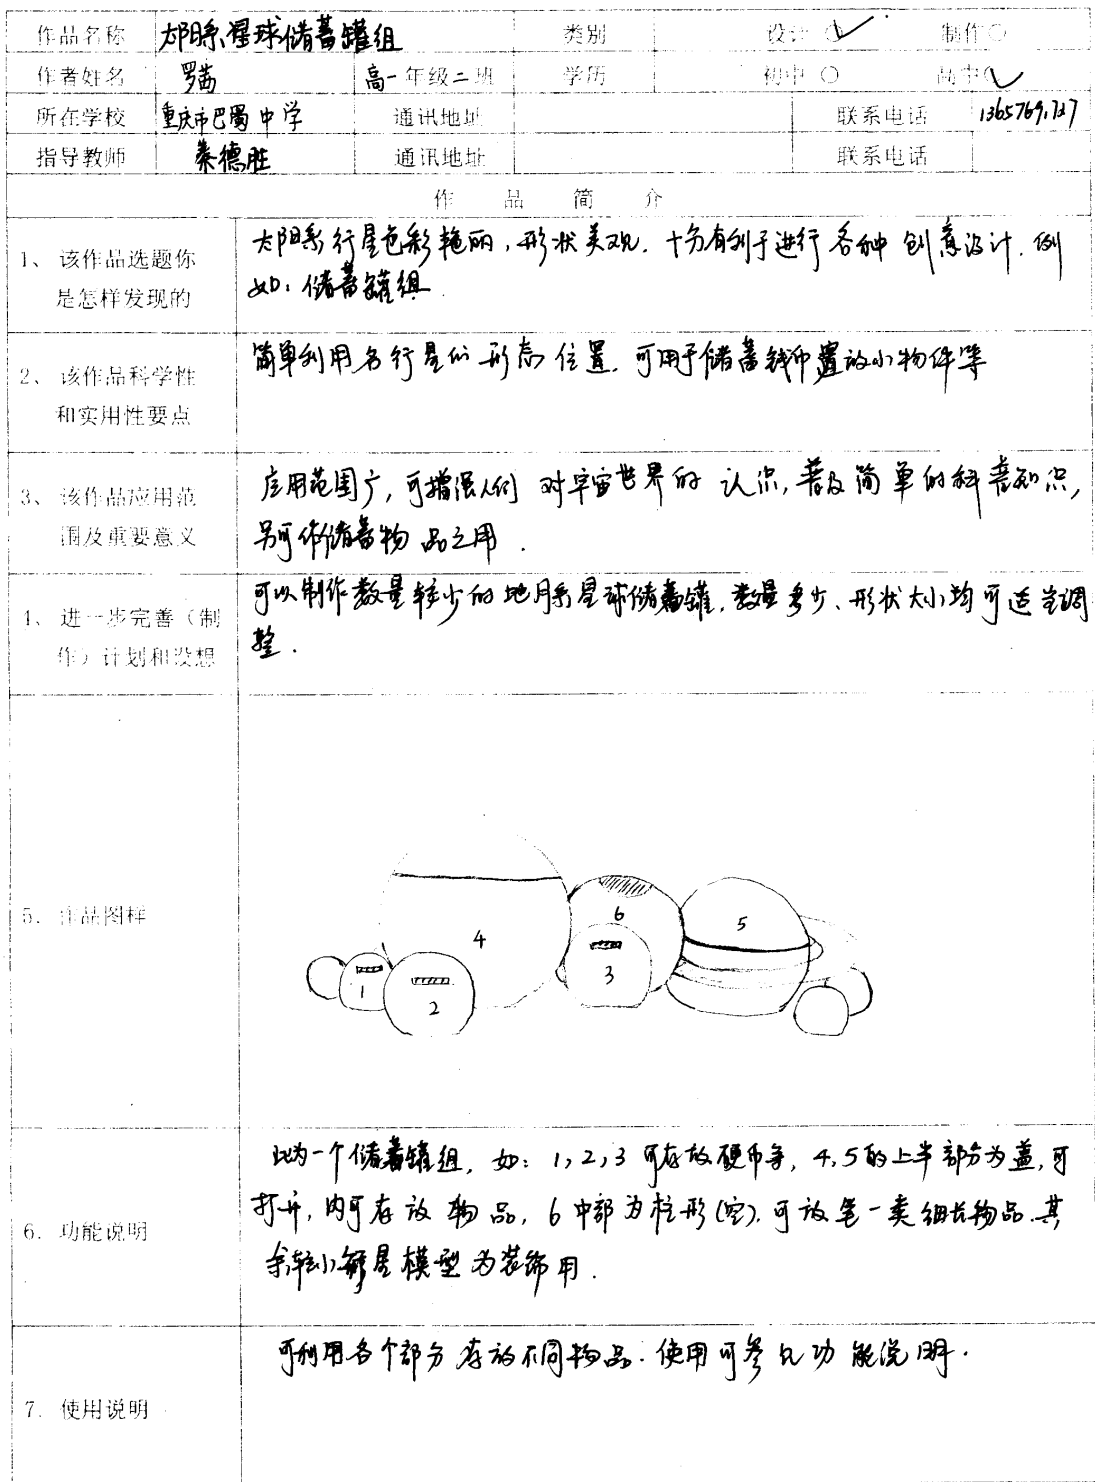 作品名称 太阳系星球储蓄罐组 类别 设计 ○ 制作 ○
作者姓名 罗茜 高一年级二班 学历 初中 ○ 高中 ○
所在学校 重庆市巴蜀中学 通讯地址 联系电话
指导教师 秦德胜 通讯地址 联系电话
作品简介
1、该作品选题你
是怎样发现的
太阳系行星色彩艳丽,形状美观.十分有利于进行各种创意设计.例
如:储蓄罐组.
2、该作品科学性
和实用性要点
简单利用各行星的形态位置.可用于储蓄钱币置放小物件等
3、该作品应用范
围及重要意义
应用范围广,可增强人们对宇宙世界的认识,普及简单的科普知识,
另可作储蓄物品之用.
4、进一步完善(制
作)计划和设想
可以制作数量较少的地月系星球储蓄罐.数量多少、形状大小均可适当调
整.
5. 作品图样
4
6
5
1
2
3
6. 功能说明
此为一个储蓄罐组,如:1,2,3可存放硬币等,4,5的上半部分为盖,可
打开,内可存放物品,6中部为柱形(空).可放笔一类细长物品.其
余较小行星模型为装饰用.
7. 使用说明
可利用各个部分存放不同物品.使用可参见功能说明.